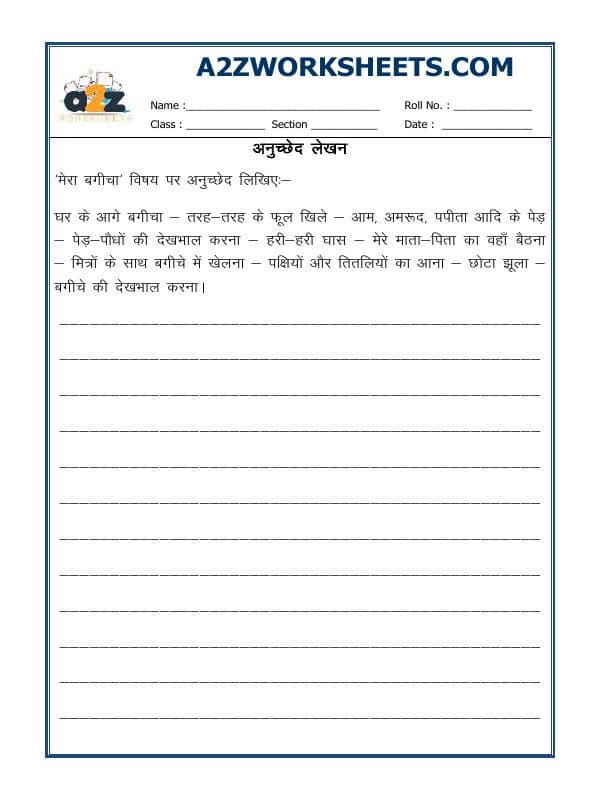 A2ZWORKSHEETS.COM
a2z
WORKSHEETS
Name :______________________________ Roll No. : ____________
Class : ____________ Section __________ Date : ______________
अनुच्छेद लेखन
‘मेरा बगीचा’ विषय पर अनुच्छेद लिखिएः–
घर के आगे बगीचा – तरह–तरह के फूल खिले – आम, अमरूद, पपीता आदि के पेड़
– पेड़–पौधों की देखभाल करना – हरी–हरी घास – मेरे माता–पिता का वहाँ बैठना
– मित्रों के साथ बगीचे में खेलना – पक्षियों और तितलियों का आना – छोटा झूला –
बगीचे की देखभाल करना।